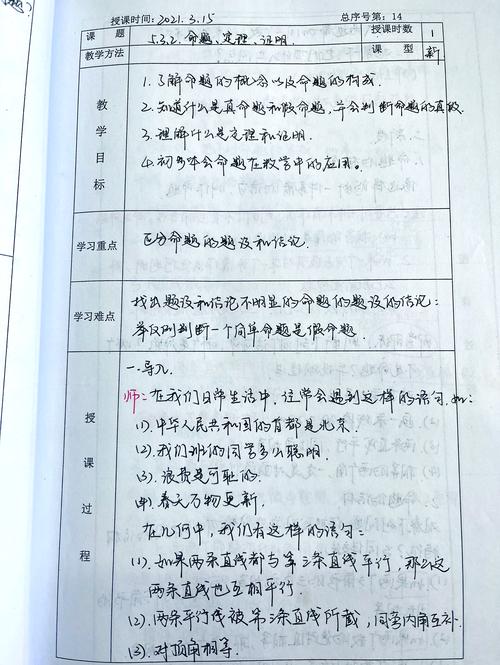 授课时间：2021.3.15 总序号第：14
课题 5.3.2 命题、定理、证明 授课时数 1
教学方法 课型 新
教学目标
1.了解命题的概念以及命题的构成.
2.知道什么是真命题和假命题,并会判断命题的真假.
3.理解什么是定理和证明.
4.初步体会命题在数学中的应用.
学习重点 区分命题的题设和结论.
学习难点 找出题设和结论不明显的命题的题设和结论:
举反例判断一个简单命题是假命题
授课过程
一.导入.
师:在我们日常生活中,经常会遇到这样的语句.如:
(1).中华人民共和国的首都是北京.
(2).我们班的同学多么聪明.
(3).浪费是可耻的.
(4).春天万物更新.
在几何中,我们有这样的语句:
(1).如果两条直线都与第三条直线平行,那么这
两条直线也互相平行.
(2).两条平行线被第三条直线所截,同旁内角互补.
(3).对顶角相等.